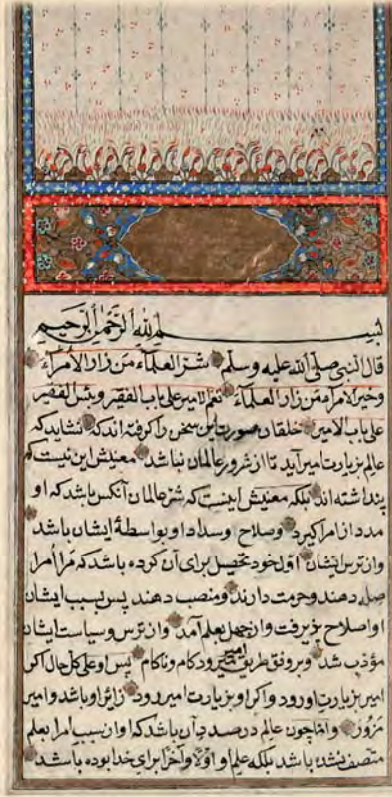 بسم الله الرحمن الرحيم
قال النبی صلی الله علیه وسلم شر العلماء من زار الامراء
وخیر الامراء من زار العلماء نعم الامیر علی باب الفقیر وبئس الفقیر
علی باب الامیر خلقان صورت این سخن را کرفته اند که نشاید که
عالم بزیارت امیر آید تا از شرور عالمان نباشد معنیش این نیست که
پنداشته اند بلکه معنیش اینست که شر عالمان آنکس باشد که او
مدد از امرا کیرد وصلاح وسداد او بواسطهٔ ایشان باشد
واز ترس ایشان اول خود تحصیل برای آن کرده باشد که مرا امرا
صله دهند وحرمت دارند ومنصب دهند پس بسبب ایشان
او اصلاح پذیرفت واز جهل بعلم آمد واز ترس وسیاست ایشان
مؤدب شد وبر وفق طریق امیر میرود کام وناکام پس او علی کل حال اکر
امیر بزیارت او رود واکر او بزیارت امیر رود زائر او باشد وامیر
مزور واما چون عالم درصدد آن باشد که او از سبب امرا بعلم
متصف نشده باشد بلکه علم او اولا وآخرا برای خدا بوده باشد